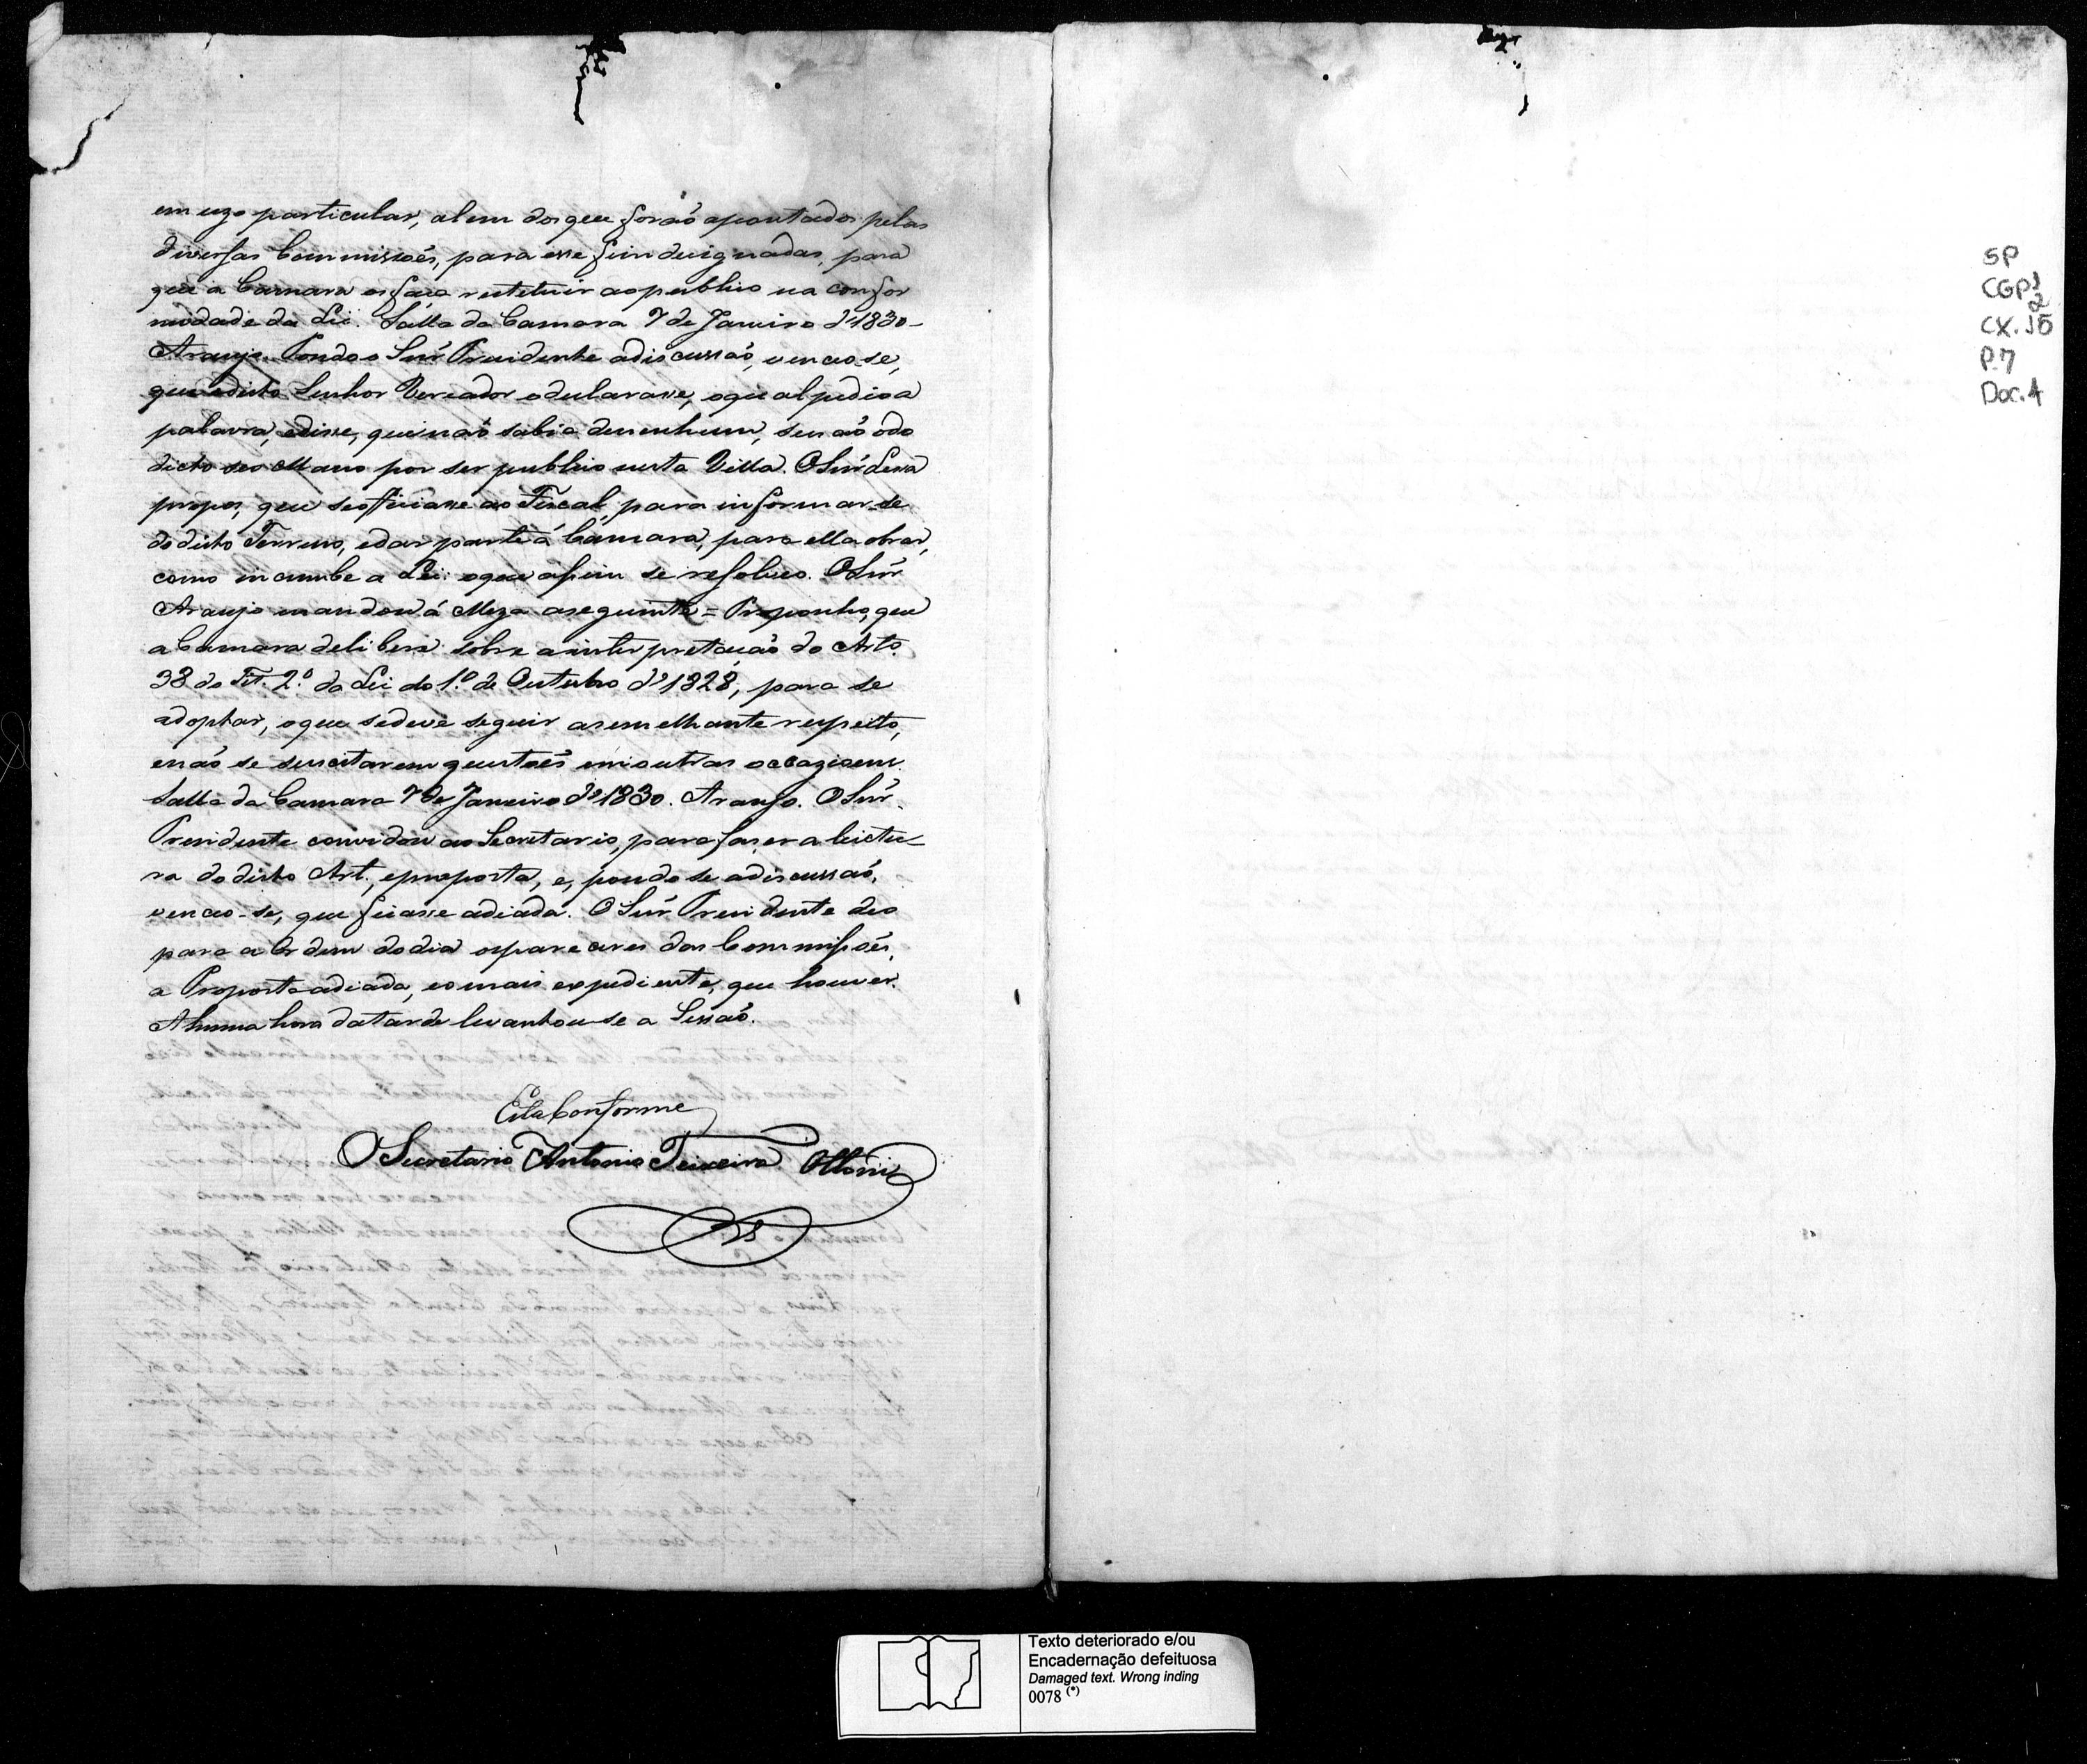 em uzo particular, alem dos que forão apontados pelas
diversas Commissoẽs, para esse fim designadas, para
que a Camara os faça restetuir ao publico na confor
midade da Lei. Salla da Camara 7 de Janeiro d'1830-
Araujo. Pondo o Snr̃ Prezidente a discussaõ, venceo-se,
que o dicto Senhor Vereador o declarasse, o qual pedio a
palavra, e disse, que naõ sabia de nenhum, senaõ o do
dicto seo Mano por ser publico nesta Villa. O Snr̃ Lessa
propos, que se officiasse ao Fiscal, para informar-se
do dicto Terreno, e dar parte á Camara, para ella obrar,
como incumbe a Lei: o que assim se resolveo. O Snr̃
Araujo mandou á Meza a seguinte = Proponho, que
a Camara delibere sobre a interpretaçaõ do Arto.
38 do Tit. 2.º da Lei do 1.º de Outubro d'1828, para se
adoptar, o que se deve seguir a semelhante respeito,
e naõ se suscitarem questoẽs em outras occazioens.
Salla da Camara 7 de Janeiro d'1830. Araujo. O Snr̃
Presidente convidou ao Secretario, para faser a leictu-
ra do dicto Art., e proposta, e, pondo se a discussaõ,
venceo-se, que ficasse adiada. O Snr̃ Presidente deo
para a Ordem do dia os pareceres das Commissoẽs,
a Proposta adiada, e o mais expediente, que houver.
A huma hora da tarde levantou-se a Sessaõ.
Está Conforme
O Secretario Antonio Teixeira Ottoni
SP
CGP1
2
CX. 15
P.7
Doc. 4
Texto deteriorado e/ou
Encadernação defeituosa
Damaged text. Wrong inding
0078 (*)